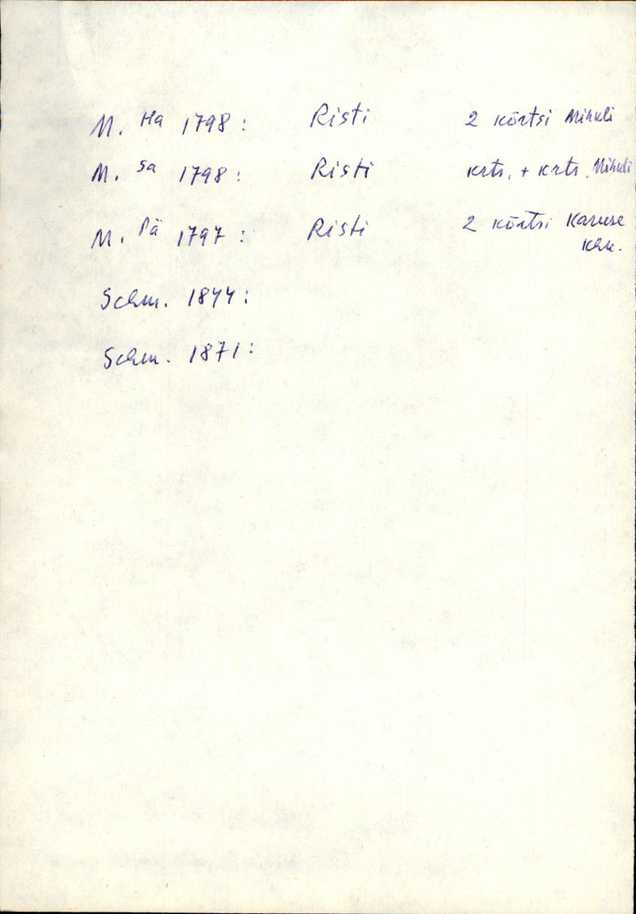 M. Ha 1798: Risti 2 kõrtsi Mihkli
M. Sa 1798: Risti krts. + krts. Mihkli
M. Pä 1797: Risti 2 kõrtsi Karuse
khk.
Schm. 1844:
Schm. 1871: